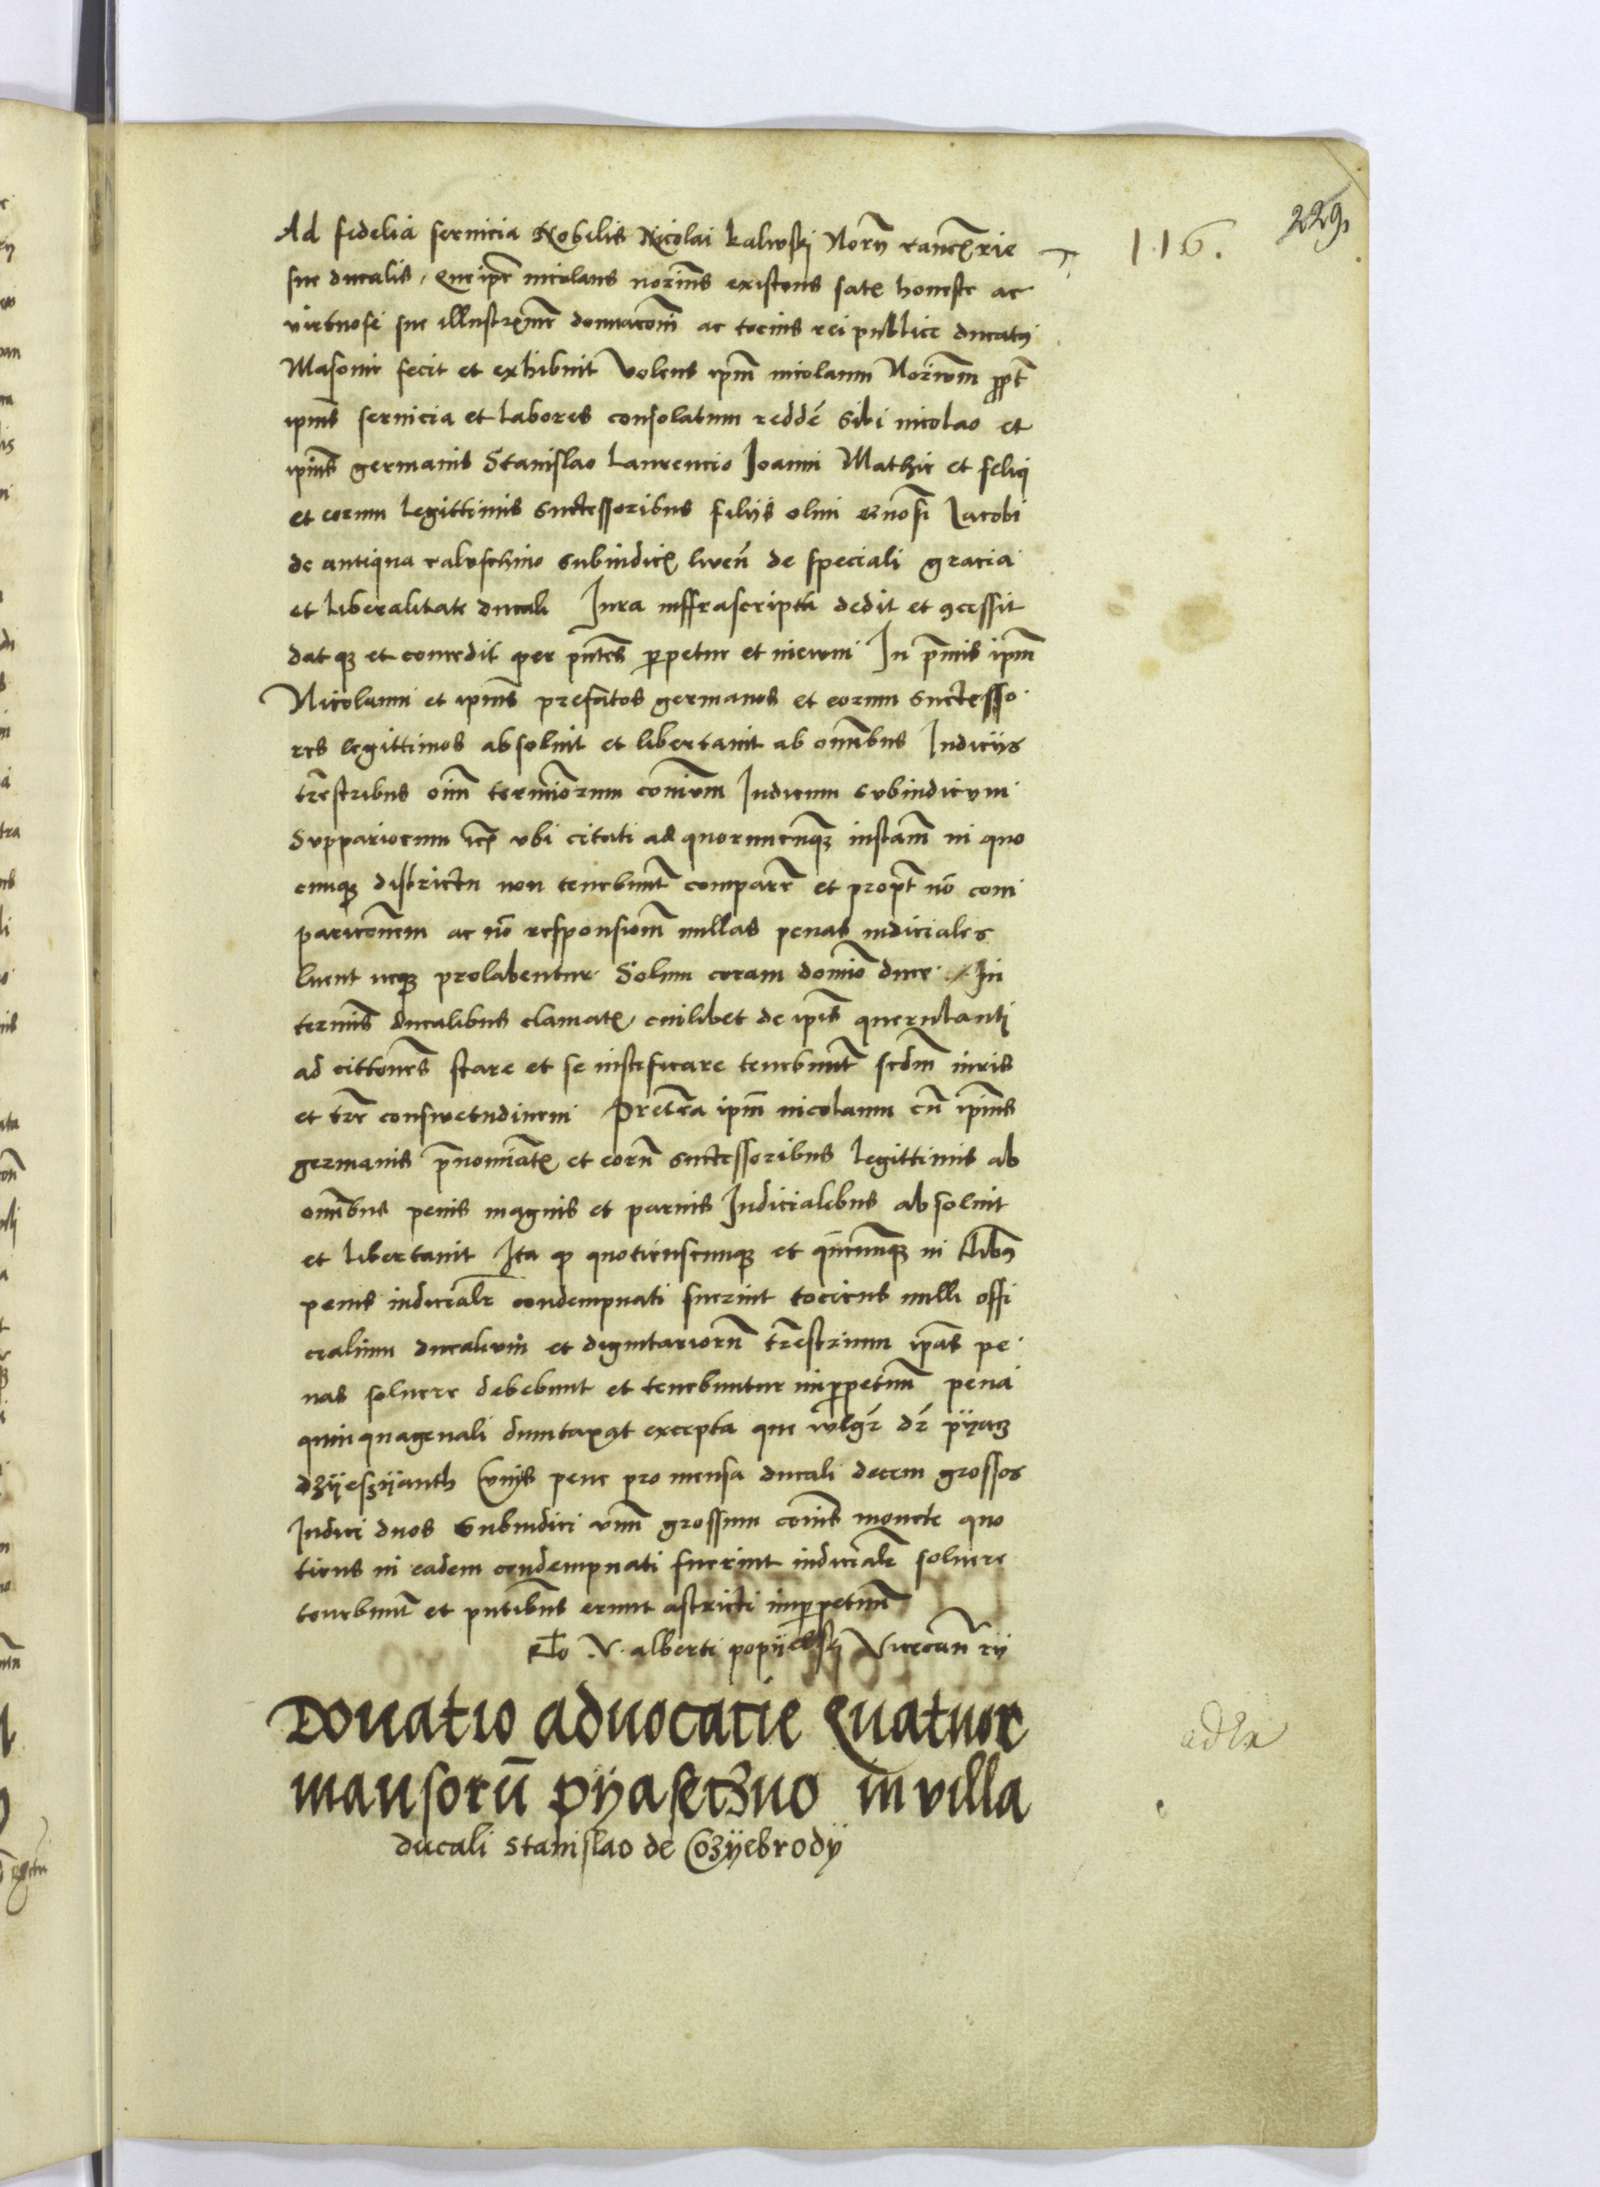 116.
229
Ad fidelia servicia Nobilis Nicolai kalwskj Norÿ cancellrie
sue ducalis, Que ipse nicolaus notrius existens satis honeste ac
virtuose sue illustrissime donaconi ac tocius rei publice ducatus
Masovie fecit et exhibuit Volens ipm nicolaum Notrium ppt
ipius servicia et labores consolatum redde sibi nicolao et
ipius germanis Stanislao Laurencio Joanni Mathie et felici
et eorum legittimis successoribus filÿs olim Jacobi
de antiqua subiudicis liven de speciali gracia
et liberalitate ducali Jura inffrascripta dedit et concessit
dat que et concedit per pntes perpetue et in evum In primis ipm
Nicolaum et ipius prefatos germanos et eorum successo
res legittimos absolvit et libertavit ab omnibus Judicÿs
trestribus oim terminorum comium Judicum subiudicum
Suppariorum ubi citati ad quorumcunque instam in quo
cunque districtu non tenebunt compare et propt no com
paricoem ac no responsionem nullas penas iudiciales
luent neque prolabentur Solum coram domio duce In
terminis ducalibus clamatis cuilibet de ipis querulanti
ad cittones stare et se iustificare tenebunt scdm iuris
et tre conswetudinem Preterea ipm nicolaum cu ipius
germanis pnominatis et eoru successoribus legittimis ab
omnibus penis magnis et parvis Judicialibus absolvit
et libertavit Ita quod quotienscunque et in
penis iudiciale condempnati fuerint tociens nulli offi
cialium ducalium et dignitarioru trestrium ipas pe
nas solvere debebunt et tenebuntur imperpetuum pena
quinquagenali dumtaxat excepta que wlgr dr pÿacz
dzÿeszÿanth Cuius pene pro mensa ducali decem grossos
Judici duos Subiudici unum grossum comis monete quo
tiens in eadem condempnati fuerint iudiciale solvere
tenebunt et pntibus erunt astricti imperpetuum
Rlo V. alberti popÿelskÿ Vicecan rÿ
Donatio advocatie Quatuor
mansoru pÿaseczno in villa
ducali Stanislao de Cozÿebrodÿ